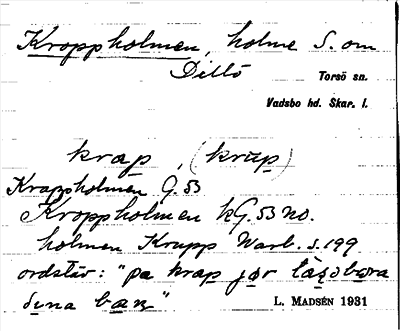 Kroppholmen, holme S. om
Dillö
Torsö sn.
Vadsbo hd. Skar. l.
krap, (krup)
Krappholmen G. 53
Kroppholmen kG. 53 NO.
holmen Krupp Warb. s. 199
ordstäv: "pa krap jør
bara
L. MADSÉN 1931